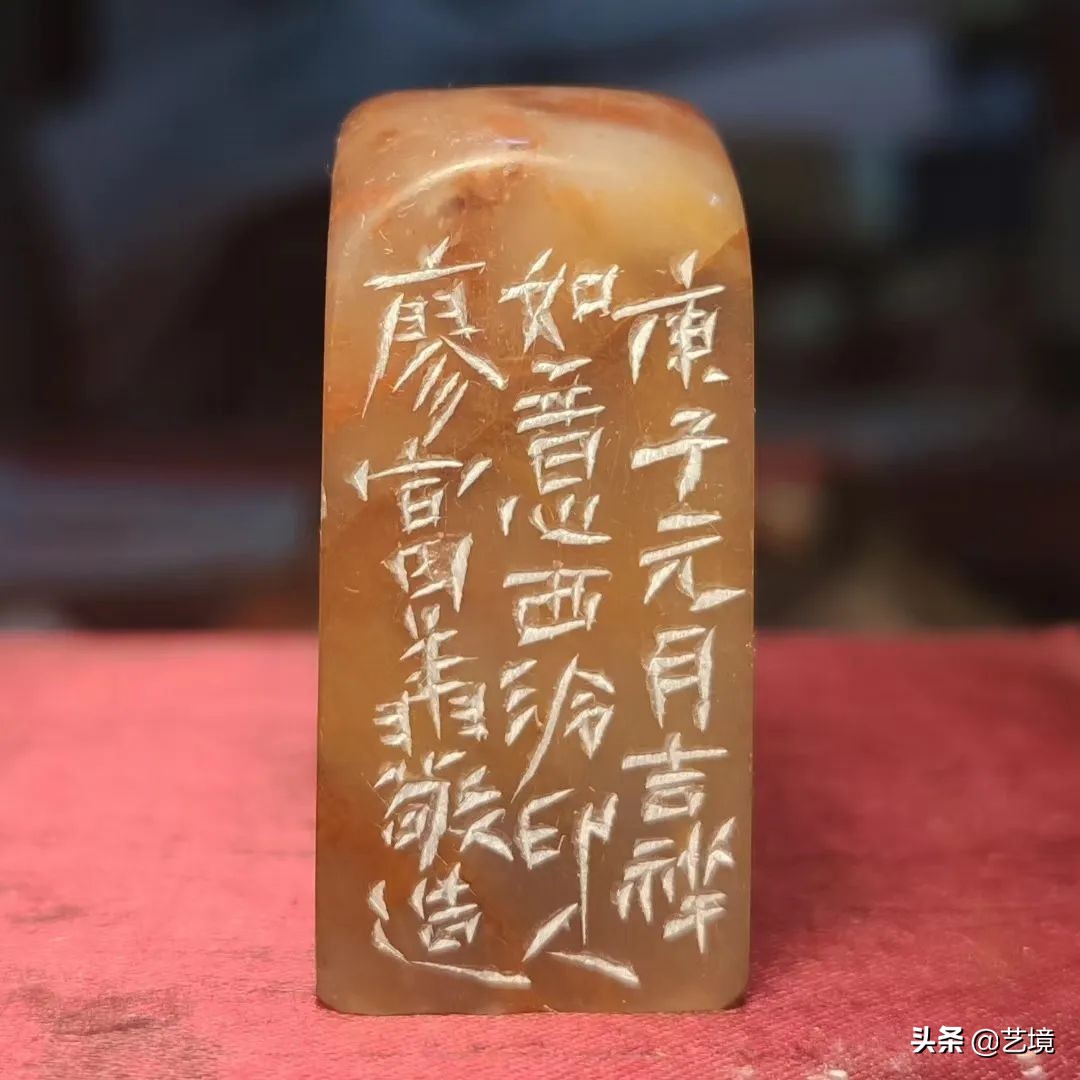 庚子元月吉祥
如意西泠印人
廖富翔敬造
头条 @艺境